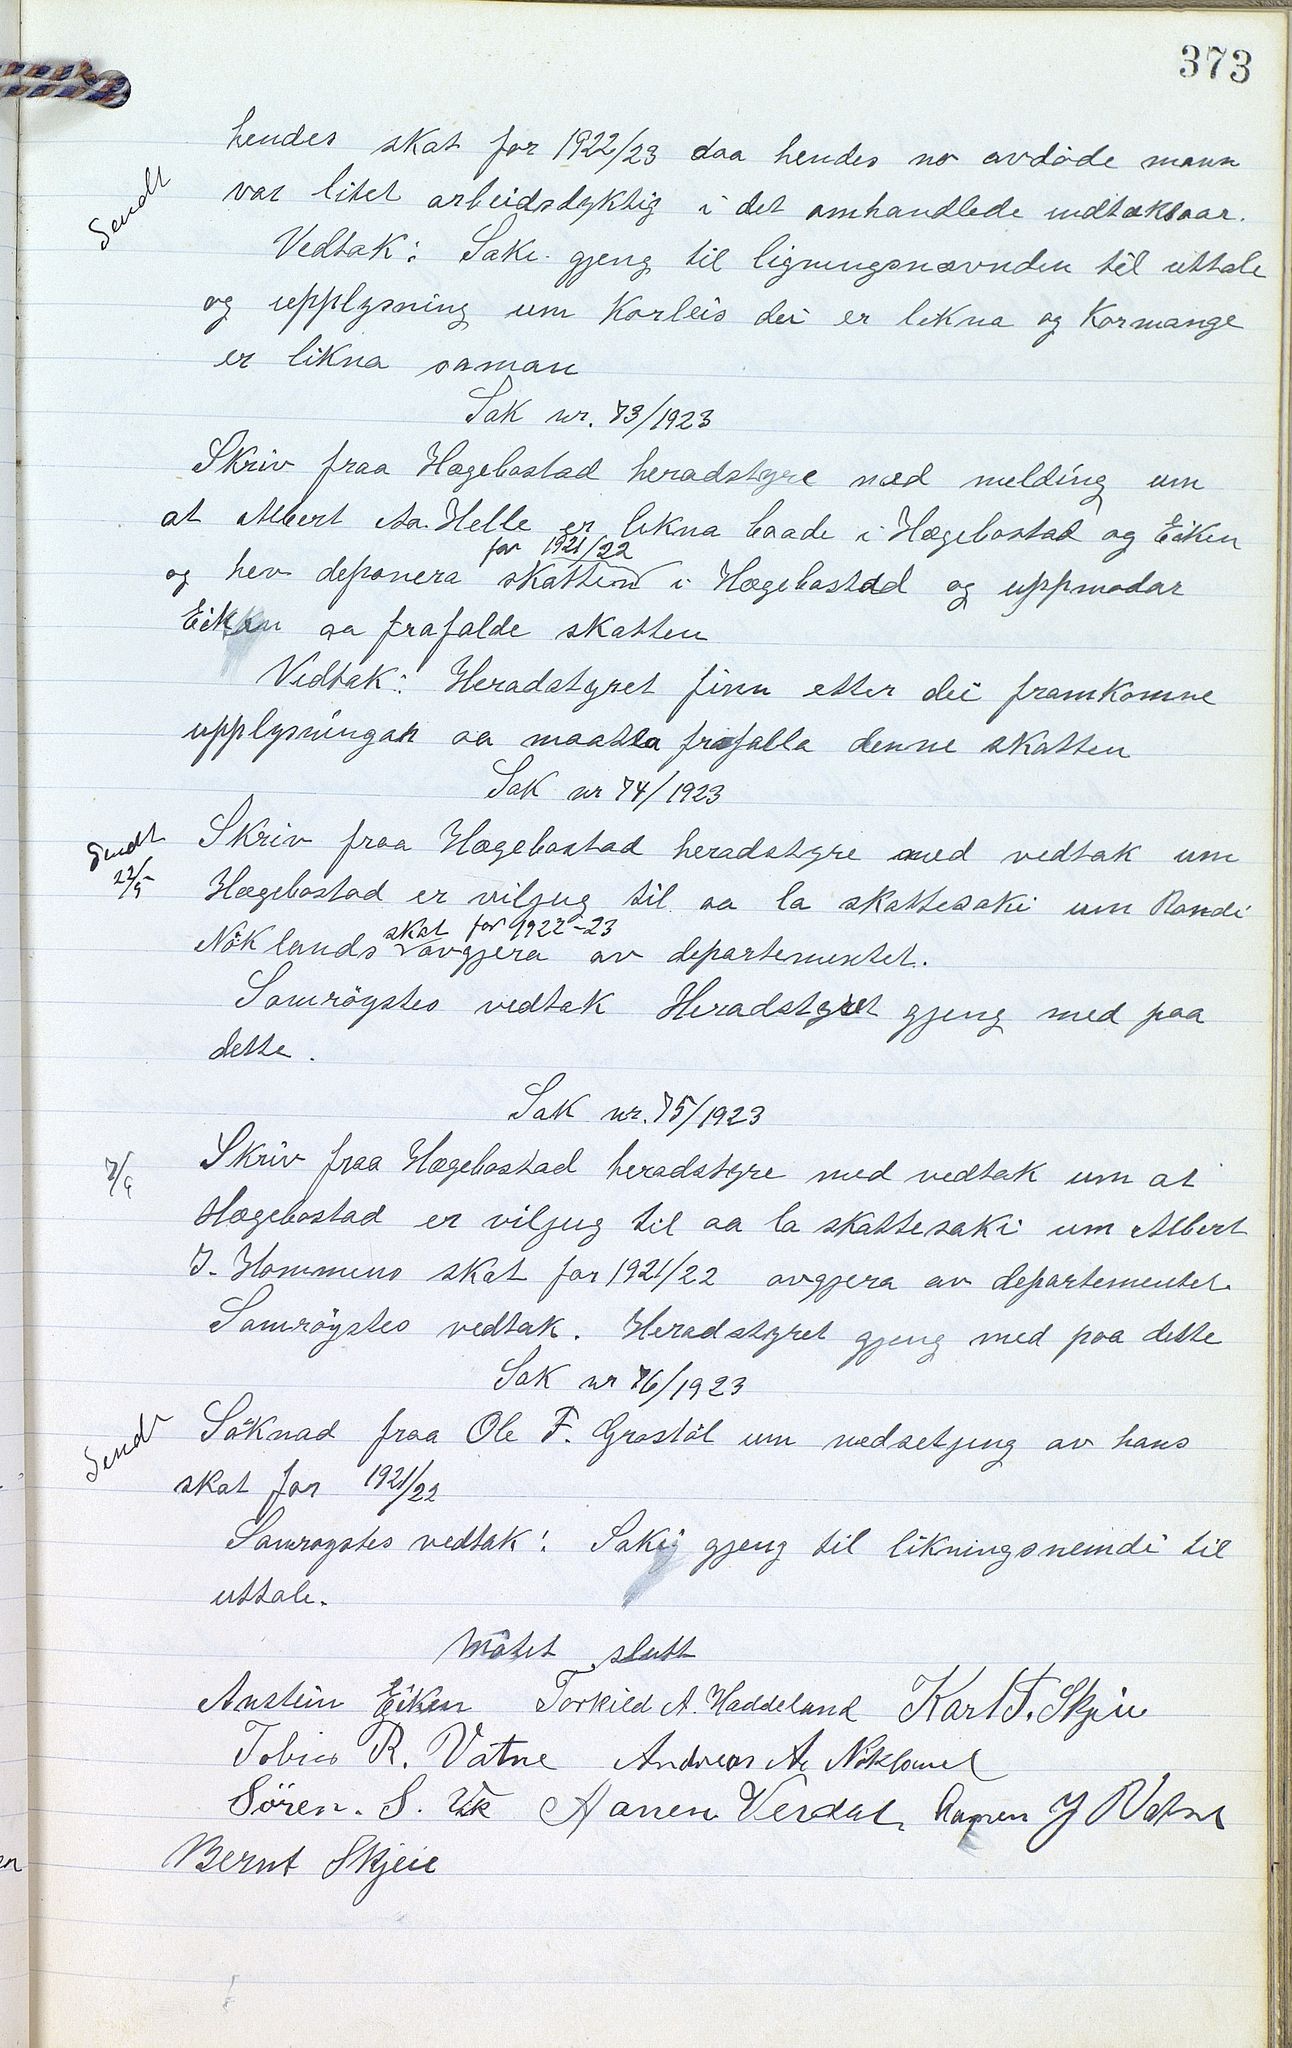 373
hendes skat for 1922/23 daa hendes no avdöde mann
Sendt
var litet arbeidsdyktig i det omhandlede indtæktsaar.
Vedtak: Saki gjeng til ligningsnævnden til uttale
og upplysning um korleis dei er likna og kormange
er likna saman
Sak nr. 73/1923
Skriv fraa Hægebostad heradstyre med melding um
at Albert Aa. Helle er likna baade i Hægebostad og Eiken
for 1921/22
og hev deponera skatten i Hægebostad og uppmodar
Eiken aa frafalde skatten
Vedtak: Heradstyret finn etter dei framkomne
upplysningar aa maatta frafalla denne skatten
Sak nr 74/1923
Sendt
22/9
Skriv fraa Hægebostad heradstyre med vedtak um
Hægebostad er viljug til aa la skattesaki um Randi
skat for 1922-23
Nöklands avgjera av departementet.
Samröystes vedtak Heradstyret gjeng med paa
dette.
Sak nr. 75/1923
7/9
Skriv fraa Hægebostad heradstyre med vedtak um at
Hægebostad er viljug til aa la skattesaki um Albert
J. Hommens skat for 1921/22 avgjera av departementet.
Samröystes vedtak. Heradstyret gjeng med paa dette
Sak nr 76/1923
Sendt
Söknad fraa Ole F. Grostöl um nedsetjing av hans
skat for 1921/22
Samrøystes vedtak: Saki gjeng til likningsnemdi til
uttale.
Mötet slutt
Anstein Eiken Torkild A. Haddeland Karl F. Skjeie
Tobias R. Vatne Andreas A. Nökland
Sören. S. Aanen Verdal. Aanen J Vatne
Bernt Skjeie